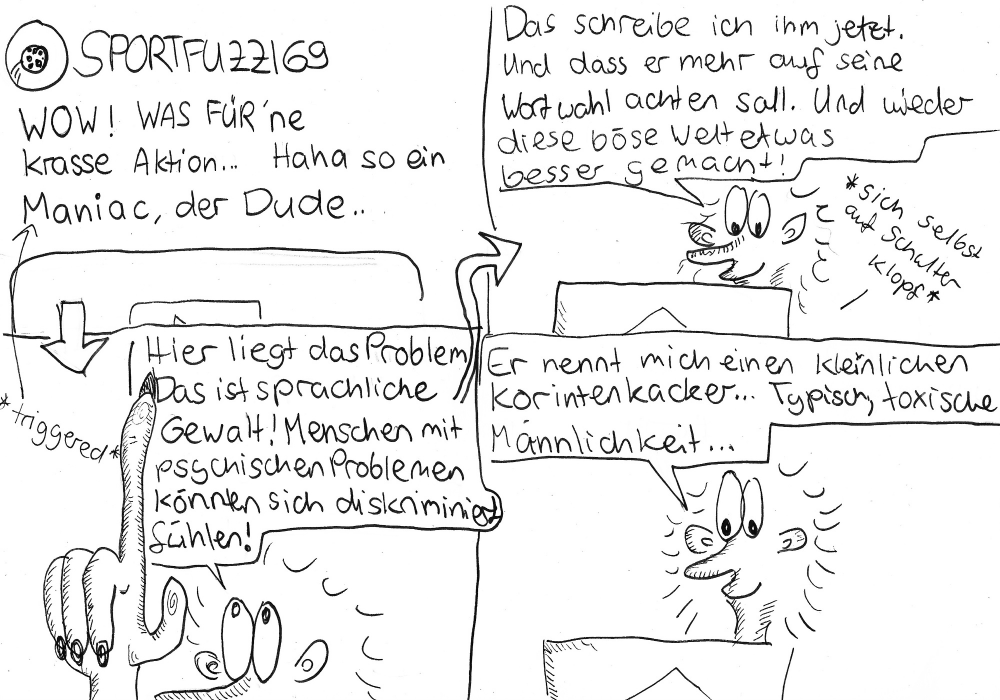 SPORTFUZZI69
WOW! WAS FÜR 'ne
krasse Aktion... Haha so ein
Maniac, der Dude..
*triggered*
Hier liegt das Problem
Das ist sprachliche
Gewalt! Menschen mit
psychischen Problemen
könnten sich diskriminiert
fühlen!
Das schreibe ich ihm jetzt.
Und dass er mehr auf seine
Wortwahl achten sall. Und wieder
diese böse Welt etwas
besser gemacht!
*sich selbst
auf Schulter
klopf*
Er nennt mich einen kleinlichen
Korintenkacker... Typisch, toxische
Männlichkeit...